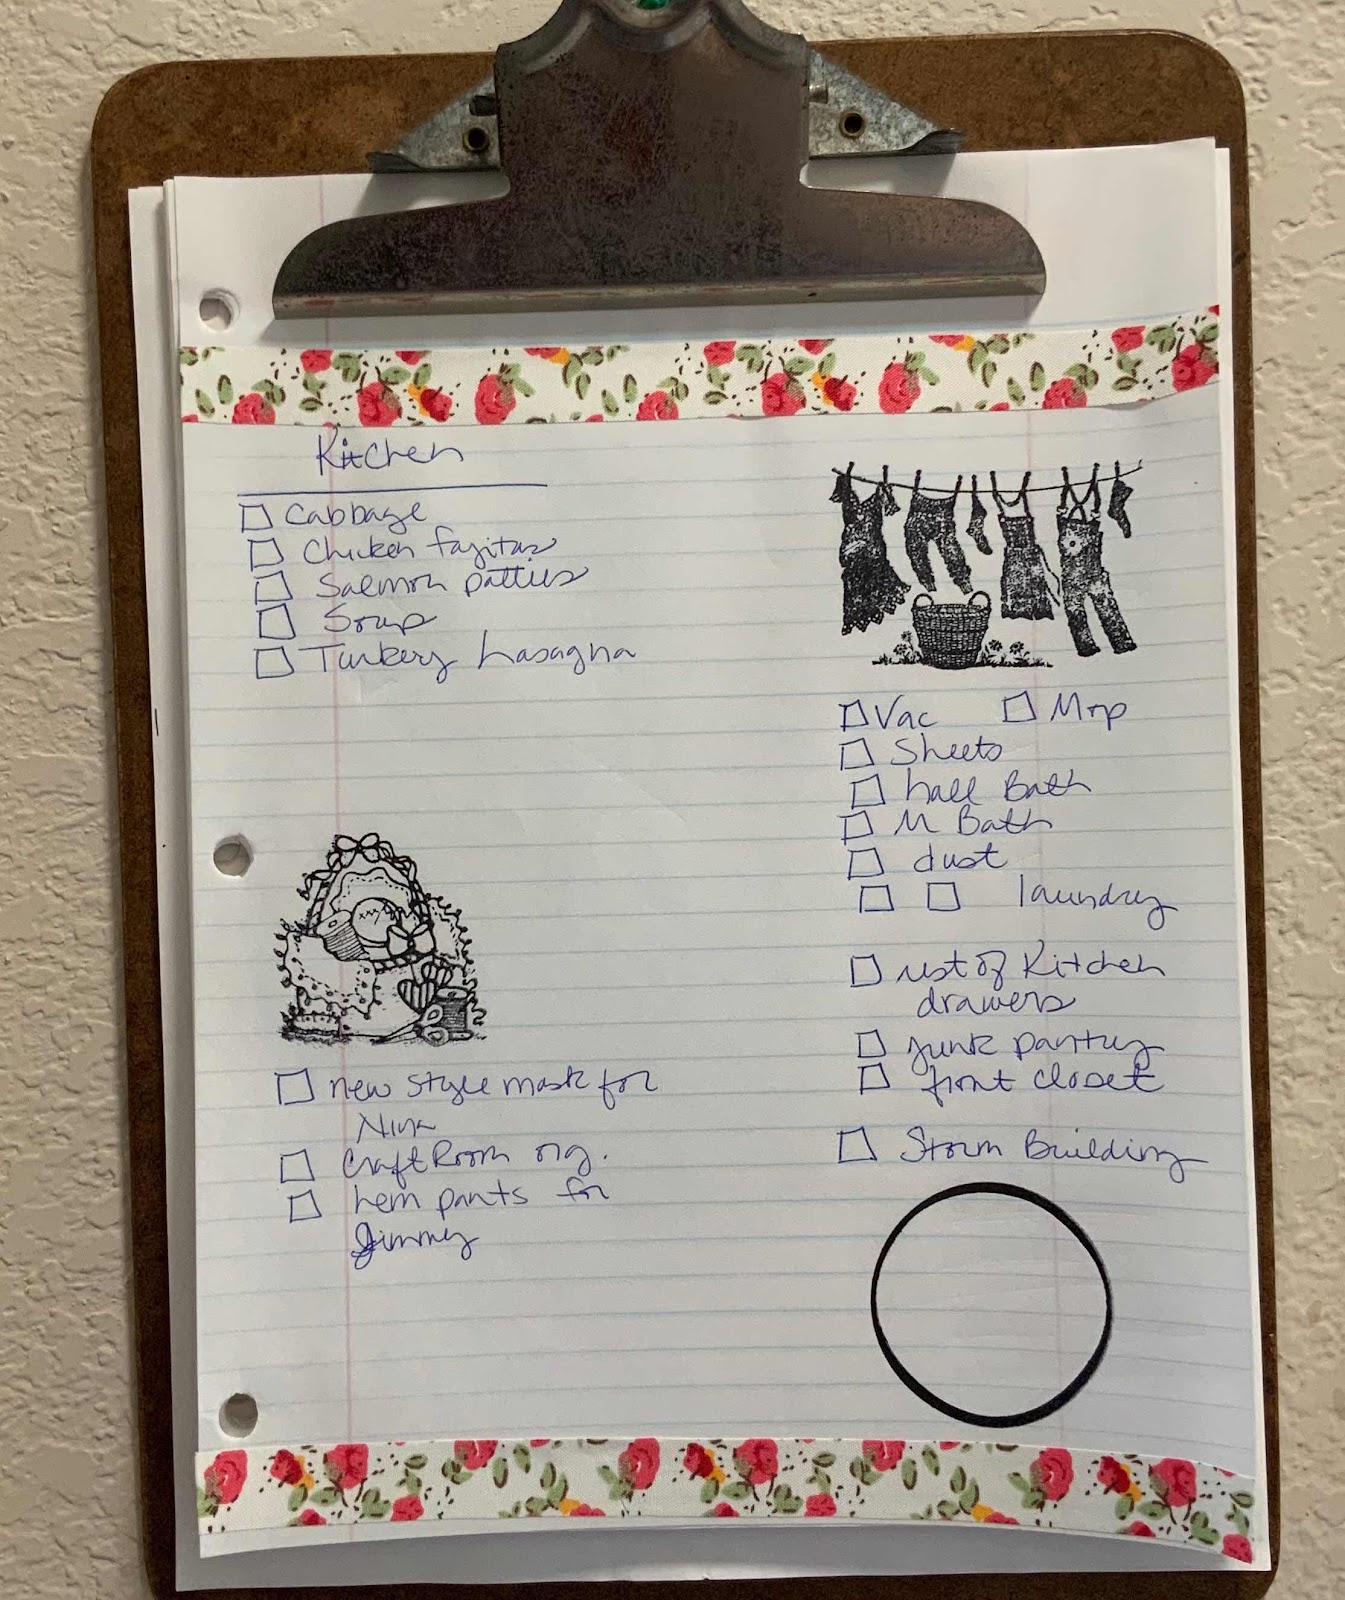 Kitchen
Cabbage
Chicken fajitas
Salmon patties
Soup
Turkey Lasagna
new style mask for
Nina
Craft Room org.
hem pants for
Jimmy
Vac Mop
Sheets
hall Bath
M Bath
dust
laundry
rest of Kitchen
drawers
junk pantry
front closet
Storm Building